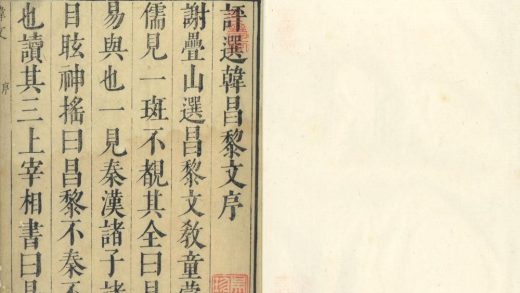 評選韓昌黎文序
謝疊山選昌黎文敎童蒙
儒見一斑不覩其全曰昌
易與也一見秦漢諸子諸
目眩神搖曰昌黎不秦不
也讀其三上宰相書曰
韓文 序